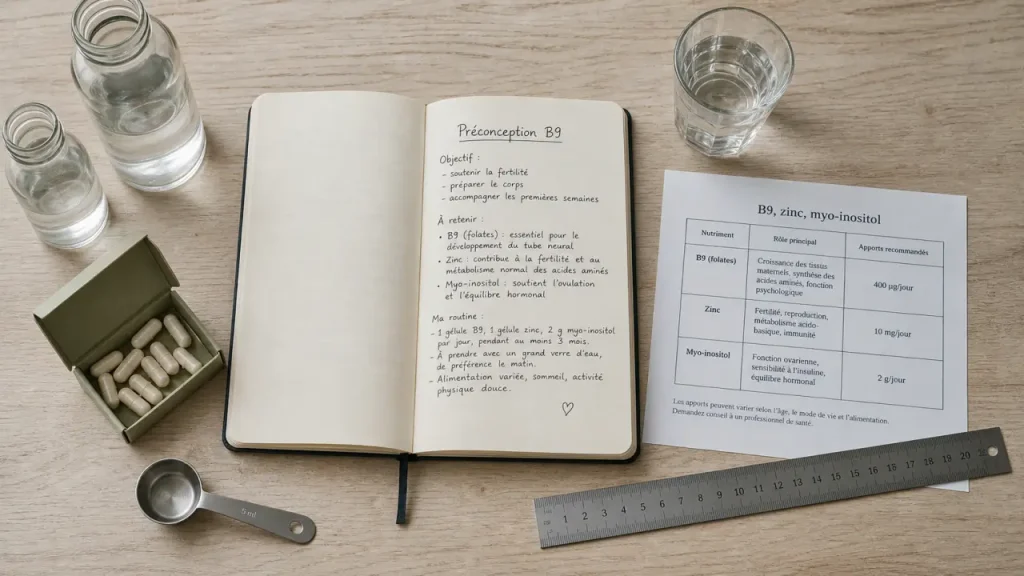 Préconception B9
Objectif :
- soutenir la fertilité
- préparer le corps
- accompagner les premières semaines
À retenir :
• B9 (folates) : essentiel pour le
développement du tube neural
• Zinc : contribue à la fertilité et au
métabolisme normal des acides aminés
• Myo-inositol : soutient l'ovulation
et l'équilibre hormonal
Ma routine :
- 1 gélule B9, 1 gélule zinc, 2 g myo-inositol
par jour, pendant au moins 3 mois.
- À prendre avec un grand verre d'eau,
de préférence le matin.
- Alimentation variée, sommeil, activité
physique douce.
B9, zinc, myo-inositol
Nutriment Rôle principal Apports recommandés
B9 (folates)
Croissance des tissus
maternels, synthèse des
acides aminés, fonction
psychologique
400 µg/jour
Zinc
Fertilité, reproduction,
métabolisme acido-
basique, immunité
10 mg/jour
Myo-inositol
Fonction ovarienne,
sensibilité à l'insuline,
équilibre hormonal
2 g/jour
Les apports peuvent varier selon l'âge, le mode de vie et l'alimentation.
Demandez conseil à un professionnel de santé.
5 ml
1 2 3 4 5 6 7 8 9 10 11 12 13 14 15 16 17 18 19 20